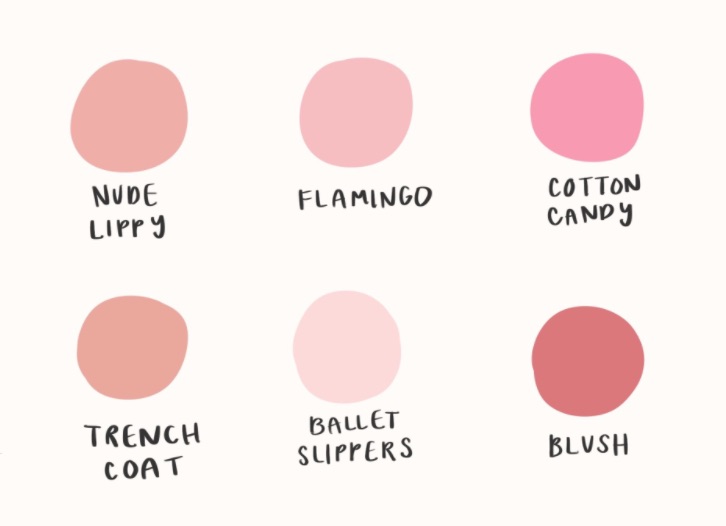 NUDE
LIPPY
FLAMINGO
COTTON
CANDY
TRENCH
COAT
BALLET
SLIPPERS
BLUSH